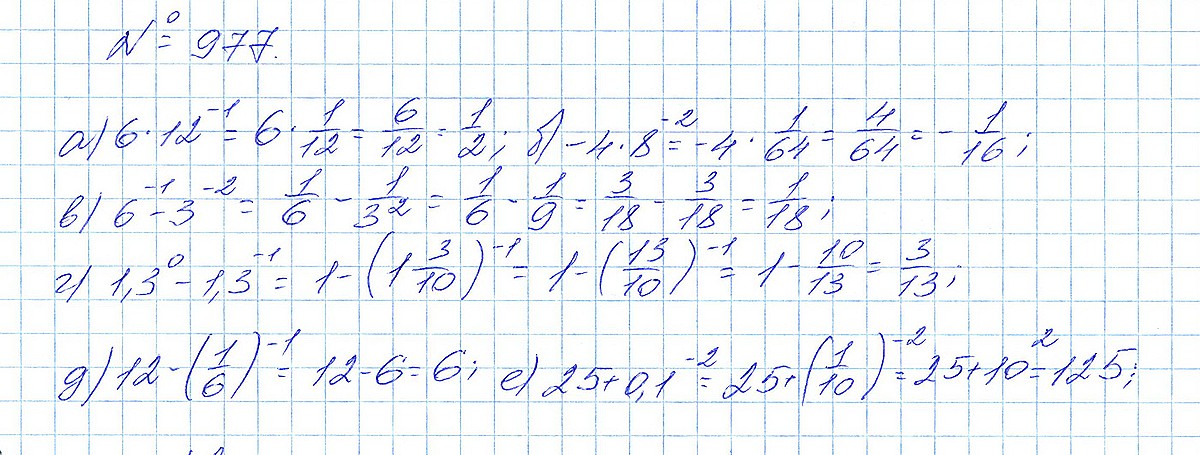 № 977.
а) 6·12⁻¹ = 6·1/12 = 6/12 = 1/2; б) -4·8⁻² = -4·1/64 = 4/64 = -1/16;
в) 6⁻¹ - 3⁻² = 1/6 - 1/3² = 1/6 - 1/9 = 3/18 - 3/18 = 1/18;
г) 1,3⁰ - 1,3⁻¹ = 1 - (1 3/10)⁻¹ = 1 - (13/10)⁻¹ = 1 - 10/13 = 3/13;
д) 12 - (1/6)⁻¹ = 12 - 6 = 6; е) 25 + 0,1⁻² = 25 + (1/10)⁻² = 25 + 10² = 125;